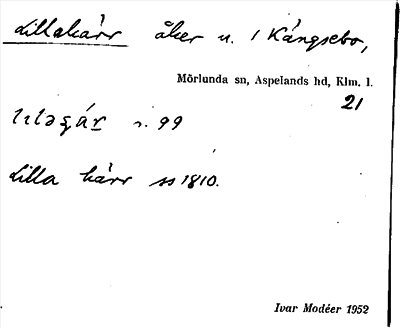 Lillakärr åker u. 1 Kångsebo,
Mörlunda sn, Aspelands hd, Klm. l.
21
s. 99
Lilla kärr ss 1810.
Ivar Modéer 1952